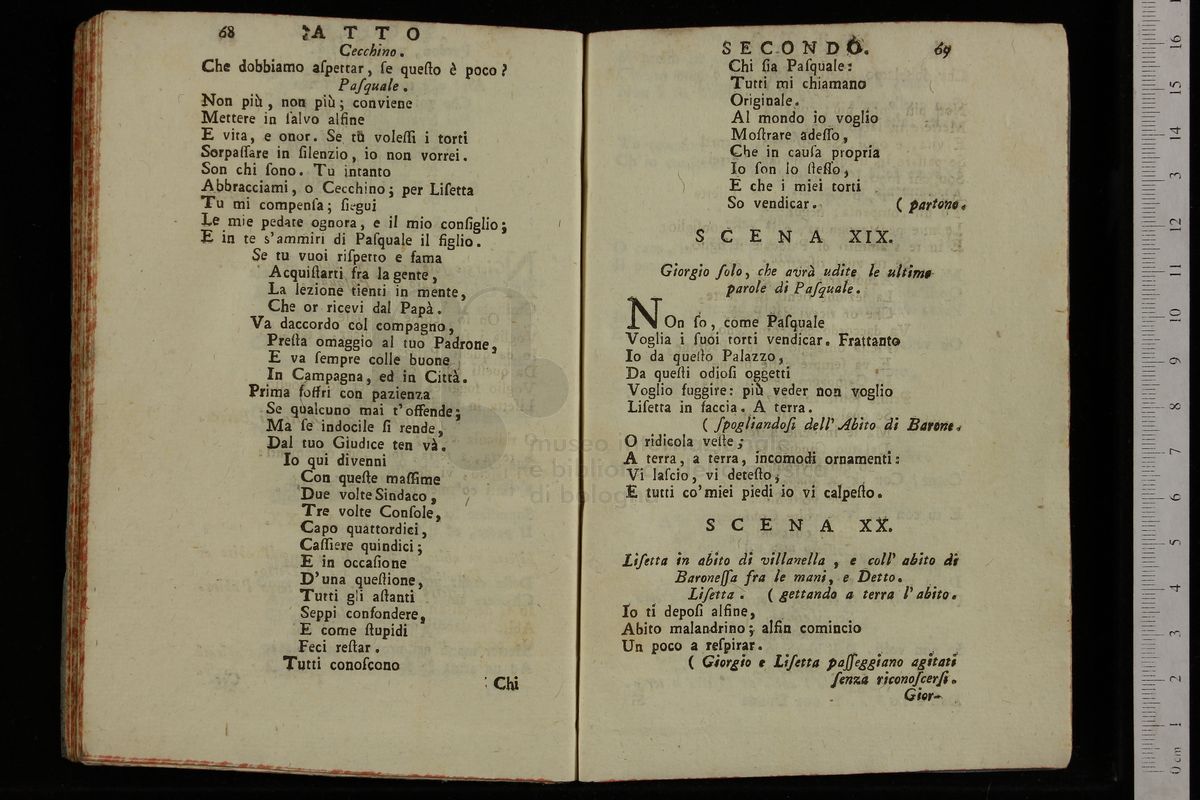 68 ATTO
Cecchino.
Che dobbiamo aſpettar, ſe queſto è poco?
Paſquale.
Non più, non più; conviene
Mettere in ſalvo alfine
E vita, e onor. Se tu voleſſi i torti
Sorpaſſare in ſilenzio, io non vorrei.
Son chi ſono. Tu intanto
Abbracciami, o Cecchino; per Liſetta
Tu mi compenſa; ſiegui
Le mie pedate ognora, e il mio conſiglio;
E in te s'ammiri di Paſquale il figlio.
Se tu vuoi riſpetto e fama
Acquiſtarti fra la gente,
La lezione tienti in mente,
Che or ricevi dal Papà.
Va daccordo col compagno,
Preſta omaggio al tuo Padrone,
E va ſempre colle buone
In Campagna, ed in Città.
Prima ſoffri con pazienza
Se qualcuno mai t'offende;
Ma ſe indocile ſi rende,
Dal tuo Giudice ten và.
Io qui divenni
Con queſte maſſime
Due volte Sindaco,
Tre volte Conſole,
Capo quattordici,
Caſſiere quindici;
E in occaſione
D'una queſtione,
Tutti gli aſtanti
Seppi confondere,
E come ſtupidi
Feci reſtar.
Tutti conoſcono
Chi
SECONDO. 69
Chi ſia Paſquale:
Tutti mi chiamano
Originale.
Al mondo io voglio
Moſtrare adeſſo,
Che in cauſa propria
Io ſon lo ſteſſo,
E che i miei torti
So vendicar. (partono.
SCENA XIX.
Giorgio ſolo, che avrà udite le ultime
parole di Paſquale.
NOn ſo, come Paſquale
Voglia i ſuoi torti vendicar. Frattanto
Io da queſto Palazzo,
Da queſti odioſi oggetti
Voglio fuggire: più veder non voglio
Liſetta in faccia. A terra.
(ſpogliandoſi dell' Abito di Barone.
O ridicola veſte;
A terra, a terra, incomodi ornamenti:
Vi laſcio, vi deteſto,
E tutti co'miei piedi io vi calpeſto.
SCENA XX.
Liſetta in abito di villanella, e coll' abito di
Baroneſſa fra le mani, e Detto.
Liſetta. (gettando a terra l'abito.
Io ti depoſi alfine,
Abito malandrino; alfin comincio
Un poco a reſpirar.
(Giorgio e Liſetta paſſeggiano agitati
ſenza riconoſcerſi.
Gior-